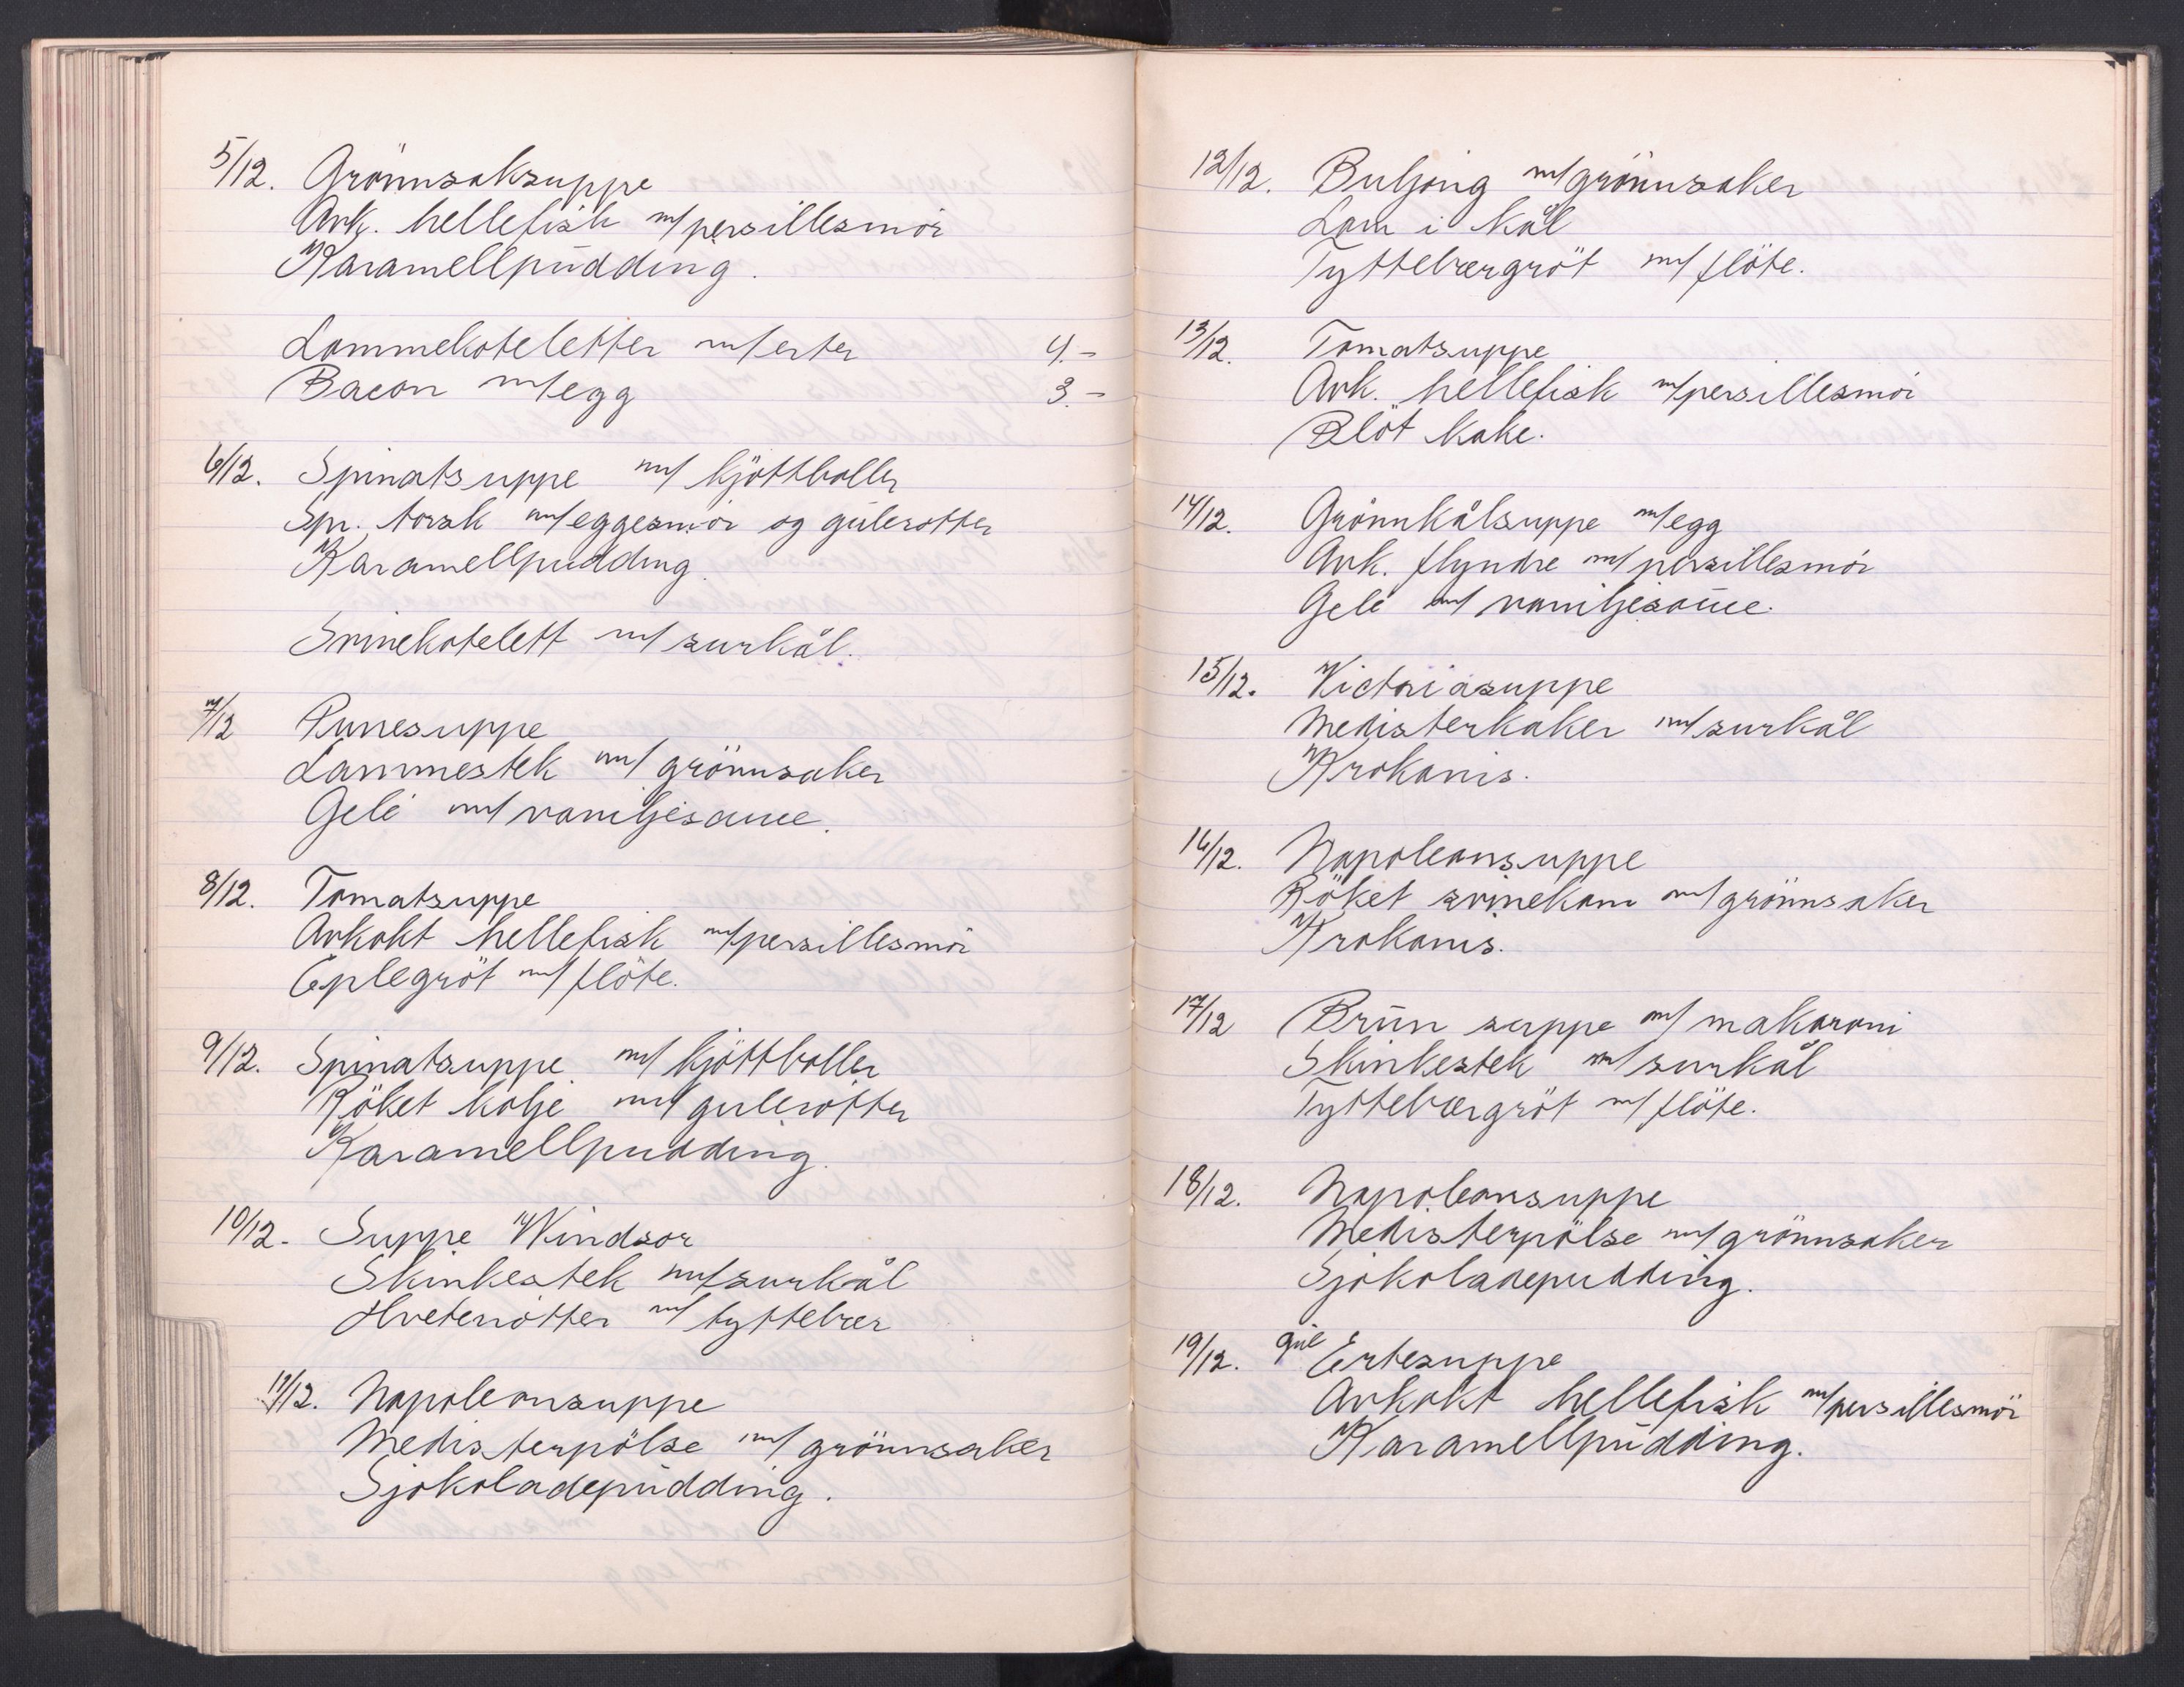 5/12. Grönnsaksuppe
Avk. hellefisk m/persillesmör
Karamellpudding.
Lammekoteletter m/erter 4.-
Bacon m/egg 3.-
6/12. Spinatsuppe m/kjöttboller
Spr. torsk m/eggesmör og gulerotter
Karamellpudding.
Svinekotelett m/surkål.
7/12 Purresuppe
Lammestek m/grönnsaker
Gelé m/vaniljesauce.
8/12. Tomatsuppe
Avkokt hellefisk m/persillesmör
Eplegröt m/flöte.
9/12. Spinatsuppe m/kjöttboller
Röket kolje m/gulerötter
Karamellpudding.
10/12. Suppe Windsor
Skinkestek m/surkål
Hvetenötter m/tyttebær
11/12. Napoleonsuppe
Medisterpölse m/grönnsaker
Sjokoladepudding.
12/12. Buljong m/grönnsaker
Lam i kål
Tyttebærgröt m/flöte.
13/12. Tomatsuppe
Avk. hellefisk m/persillesmör
Blöt kake.
14/12. Grönnkålsuppe m/egg
Avk. flyndre m/persillesmör
Gelé m/vaniljesauce.
15/12. Victoriasuppe
Medisterkaker m/surkål
Krokanis.
16/12. Napoleonsuppe
Röket svinekam m/grönnsaker
Krokanis.
17/12 Brun suppe m/makaroni
Skinkestek m/surkål
Tyttebærgröt m/flöte.
18/12. Napoleonsuppe
Medisterpölse m/grönnsaker
Sjokoladepudding.
19/12. gul Ertesuppe
Avkokt hellefisk m/persillesmör
Karamellpudding.